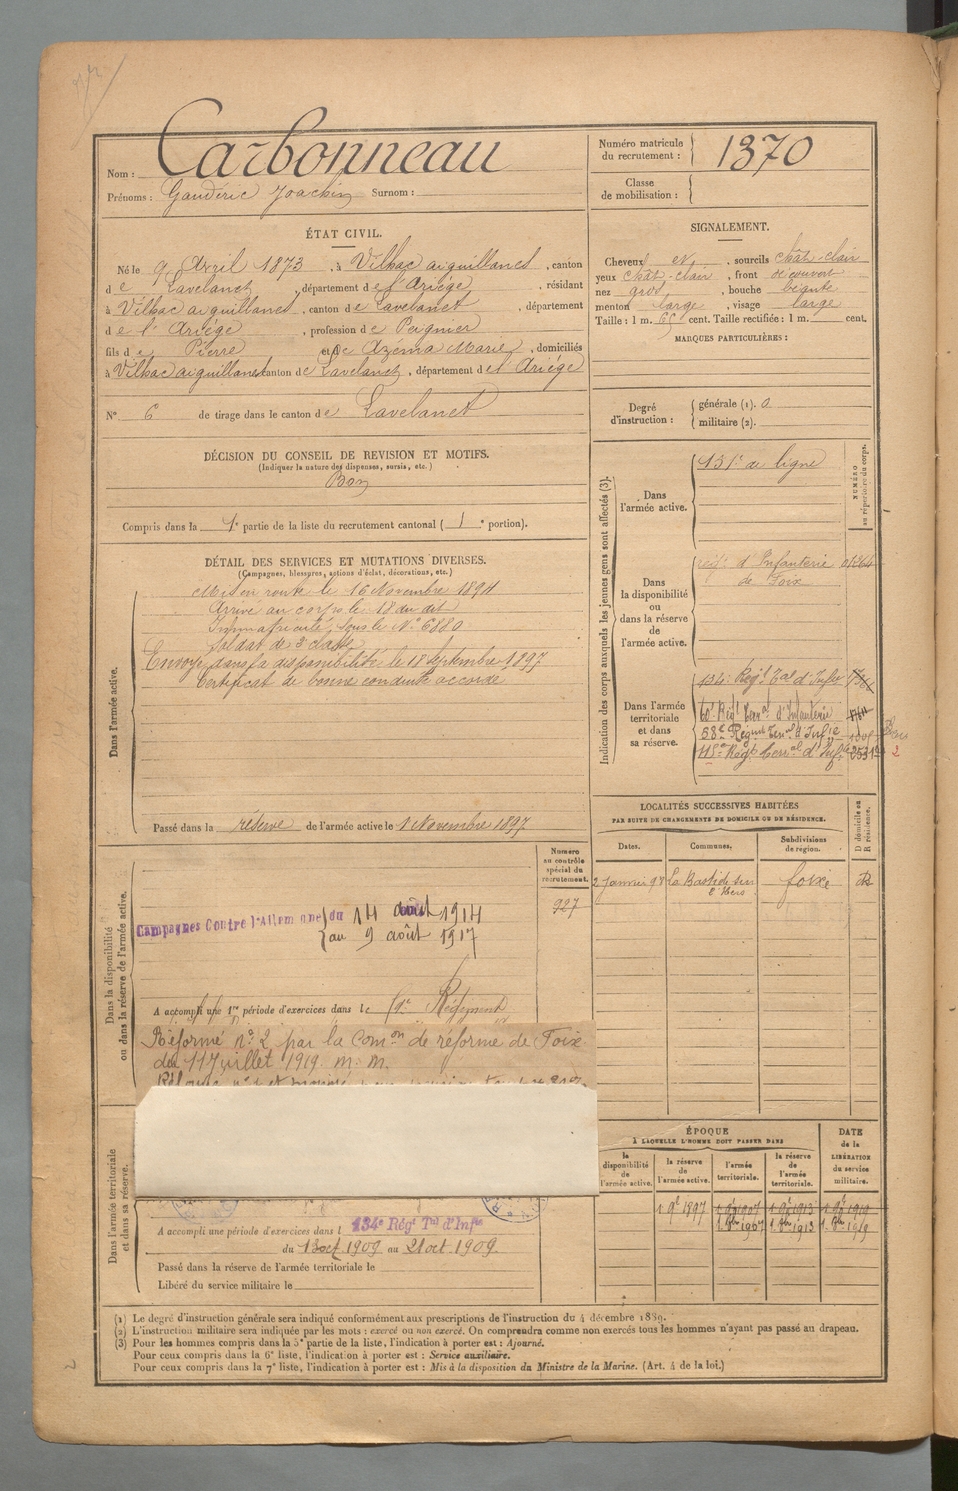 Nom : Carbonneau
Prénoms : Gaudéric Joachin Surnom :
Numéro matricule du recrutement : 1370
Classe de mobilisation :
ÉTAT CIVIL.
Né le 9 Avril 1873, à Vilhac aiguillanes, canton
de Lavelanet, département de l'Ariége, résidant
à Vilhac aiguillanes, canton de Lavelanet, département
de l'Ariége, profession de Peignier
fils de Pierre et de Azéma Marie, domiciliés
à Vilhac aiguillanes canton de Lavelanet, département de l'Ariége
N° 6 de tirage dans le canton de Lavelanet
SIGNALEMENT.
Cheveux et, sourcils chât-clair
yeux chât-clair, front découvert
nez gros, bouche béante
menton large, visage large
Taille : 1 m. 65 cent. Taille rectifiée : 1 m. cent.
MARQUES PARTICULIÈRES :
Degré d'instruction : générale (1). 0
militaire (2).
DÉCISION DU CONSEIL DE REVISION ET MOTIFS.
(Indiquer la nature des dispenses, sursis, etc.)
Bon
Compris dans la 1e partie de la liste du recrutement cantonal (1e portion).
DÉTAIL DES SERVICES ET MUTATIONS DIVERSES.
(Campagnes, blessures, actions d'éclat, décorations, etc.)
Dans l'armée active.
Mis en route le 16 Novembre 1894
Arrivé au corps le 18 du dit
Immatriculé sous le N° 6880
Soldat de 2e classe
Envoyé dans la disponibilité le 18 Septembre 1897
Certificat de bonne conduite accordé
Passé dans la réserve de l'armée active le 1 Novembre 1897
Indication des corps auxquels les jeunes gens sont affectés (3).
NUMÉRO au répertoire du corps.
Dans l'armée active.
131e de ligne
Dans la disponibilité ou dans la réserve de l'armée active.
régt d'Infanterie
de Foix
Dans l'armée territoriale et dans sa réserve.
134e Régt Tal d'Infie
60e Régt Terral d'Infanterie
58e Régiment Terral d'Infie
115e Régt Terral d'Infie
2
LOCALITÉS SUCCESSIVES HABITÉES
PAR SUITE DE CHANGEMENTS DE DOMICILE OU DE RÉSIDENCE.
Dates. Communes. Subdivisions de région. D domicile ou R résidence.
2 Janvier 98 La Bastide sur l'Hers foix R
Dans la disponibilité ou dans la réserve de l'armée active.
Numéro au contrôle spécial du recrutement.
927
Campagnes Contre l'Allemagne du 14 août 1914
au 9 août 1917
A accompli une 1re période d'exercices dans le Régiment
Réformé n° 2 par la Comon de réforme de Foix
du 11 Juillet 1919. M. M.
Dans l'armée territoriale et dans sa réserve.
A accompli une période d'exercices dans l 134e Régt Tal d'Infie
du 13 oct 1909 au 21 oct. 1909.
Passé dans la réserve de l'armée territoriale le
Libéré du service militaire le
ÉPOQUE
À LAQUELLE L'HOMME DOIT PASSER DANS
la disponibilité de l'armée active. la réserve de l'armée active. l'armée territoriale. la réserve de l'armée territoriale.
DATE de la LIBÉRATION du service militaire.
1 9e 1897 1 9e 1907 1 9e 1913 1 9e 1919
1. 8bre 1907 1. 8bre 1913 1. 8bre 1919
(1) Le degré d'instruction générale sera indiqué conformément aux prescriptions de l'instruction du 4 décembre 1889.
(2) L'instruction militaire sera indiquée par les mots : exercé ou non exercé. On comprendra comme non exercés tous les hommes n'ayant pas passé au drapeau.
(3) Pour les hommes compris dans la 5e partie de la liste, l'indication à porter est : Ajourné.
Pour ceux compris dans la 6e liste, l'indication à porter est : Service auxiliaire.
Pour ceux compris dans la 7e liste, l'indication à porter est : Mis à la disposition du Ministre de la Marine. (Art. 4 de la loi.)